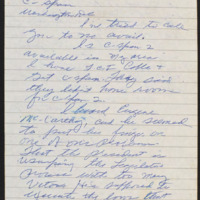 C-Span
Washington
I've tried to call
you to no avail.
Is C-Span 2
available in my area
I have TCI Cable &
get C-Span. They said
they had no room
for C-Span 2.
I heard Eugene
McCarthy and he seemed
to point his finger on
one of our problems.
That the President is
usurping the Legislative
process with too many
Vetoes. He's supposed to
execute the laws that